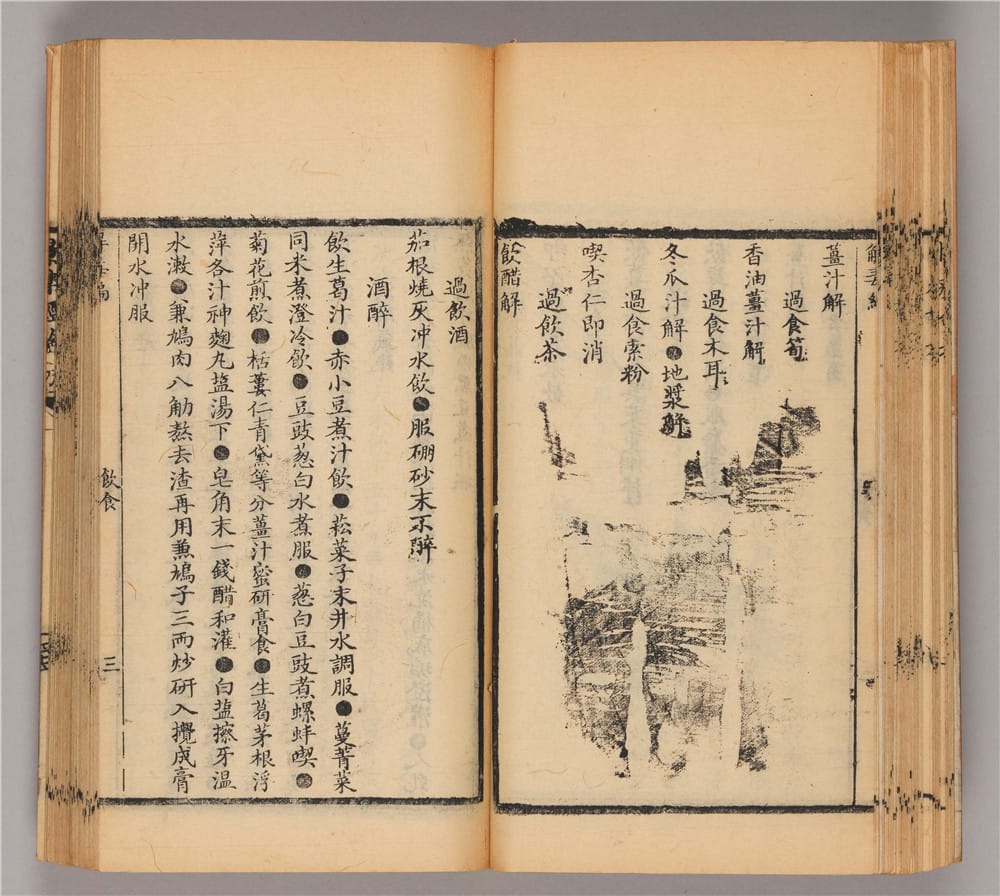 薑汁解
過食筍
香油薑汁解
過食木耳
冬瓜汁解●地漿解
過食索粉
喫杏仁即消
過飲茶
飲醋解
過飲酒
茄根燒灰冲水飲●服硼砂末不醉
酒醉
飲生葛汁●赤小豆煮汁飲●菘菜子末井水調服●蔓菁菜
同米煮澄冷飲●豆豉葱白水煮服●葱白豆豉煮螺蚌喫●
菊花煎飲●栝蔞仁青黛等分薑汁蜜研膏食●生葛茅根浮
萍各汁神麴丸盐湯下●皂角末一錢醋和灌●白盐擦牙温
水漱●兼鳩肉八觔熬去渣再用蒹鳩子三兩炒研入攪成膏
開水冲服
飲食
三